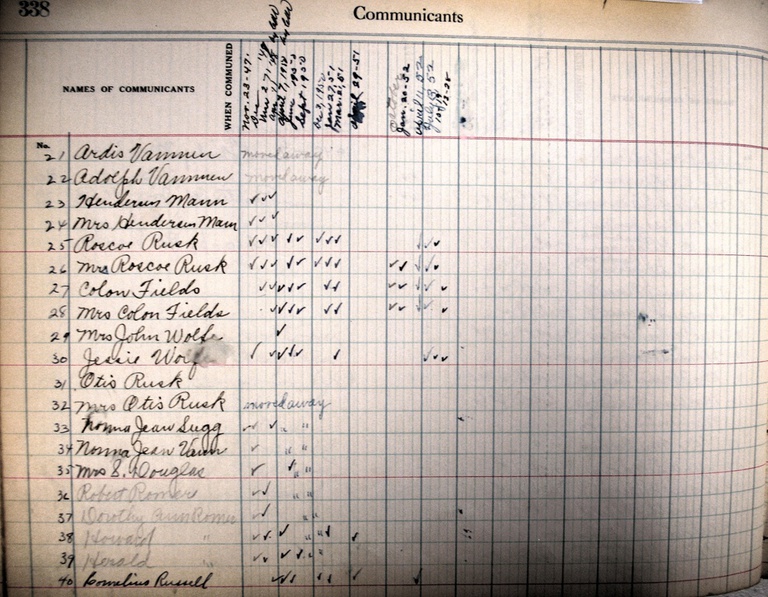 338
Communicants
NAMES OF COMMUNICANTS
WHEN COMMUNED
Nov. 23-47.
April 7, 1950
Sept 1950
Jan 27, 51
Mar. 21, 51
April 29-51
Jan. 20-52
April 11, 52
July 13, 52
No.
21 Ardis Vannuen moved away
22 Adolph Vannuen moved away
23 Henderson Mann
24 Mrs Henderson Mann
25 Roscoe Rusk
26 Mrs Roscoe Rusk
27 Colon Fields
28 Mrs Colon Fields
29 Mrs John Wolfe
30 Jessie Wolfe
31 Otis Rusk
32 Mrs Otis Rusk moved away
33 Nonna Jean Sugg " "
34 Nonna Jean Vann " "
35 Mrs S. Douglas " "
36 Robert Romer " "
37 Dorothy Ann Romer
38 Howard " " "
39 Herald " " "
40 Cornelius Russell